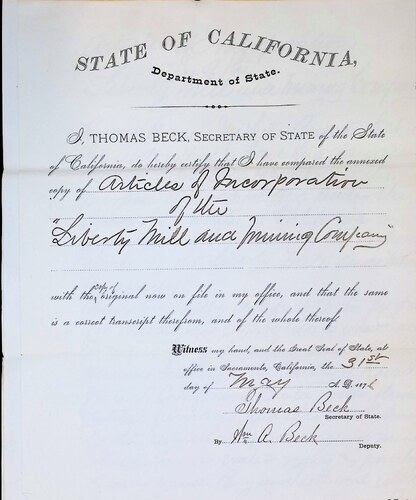 STATE OF CALIFORNIA,
Department of State.
I, THOMAS BECK, SECRETARY OF STATE of the State
of California, do hereby certify that I have compared the annexed
copy of Articles of Incorporation
of the
"Liberty Mill and Mining Company"
copy of
with the original now on file in my office, and that the same
is a correct transcript therefrom, and of the whole thereof.
Witness my hand, and the Great Seal of State, at
office in Sacramento, California, the 31st
day of May A. D. 187
Thomas Beck
Secretary of State.
By Wm A. Beck
Deputy.